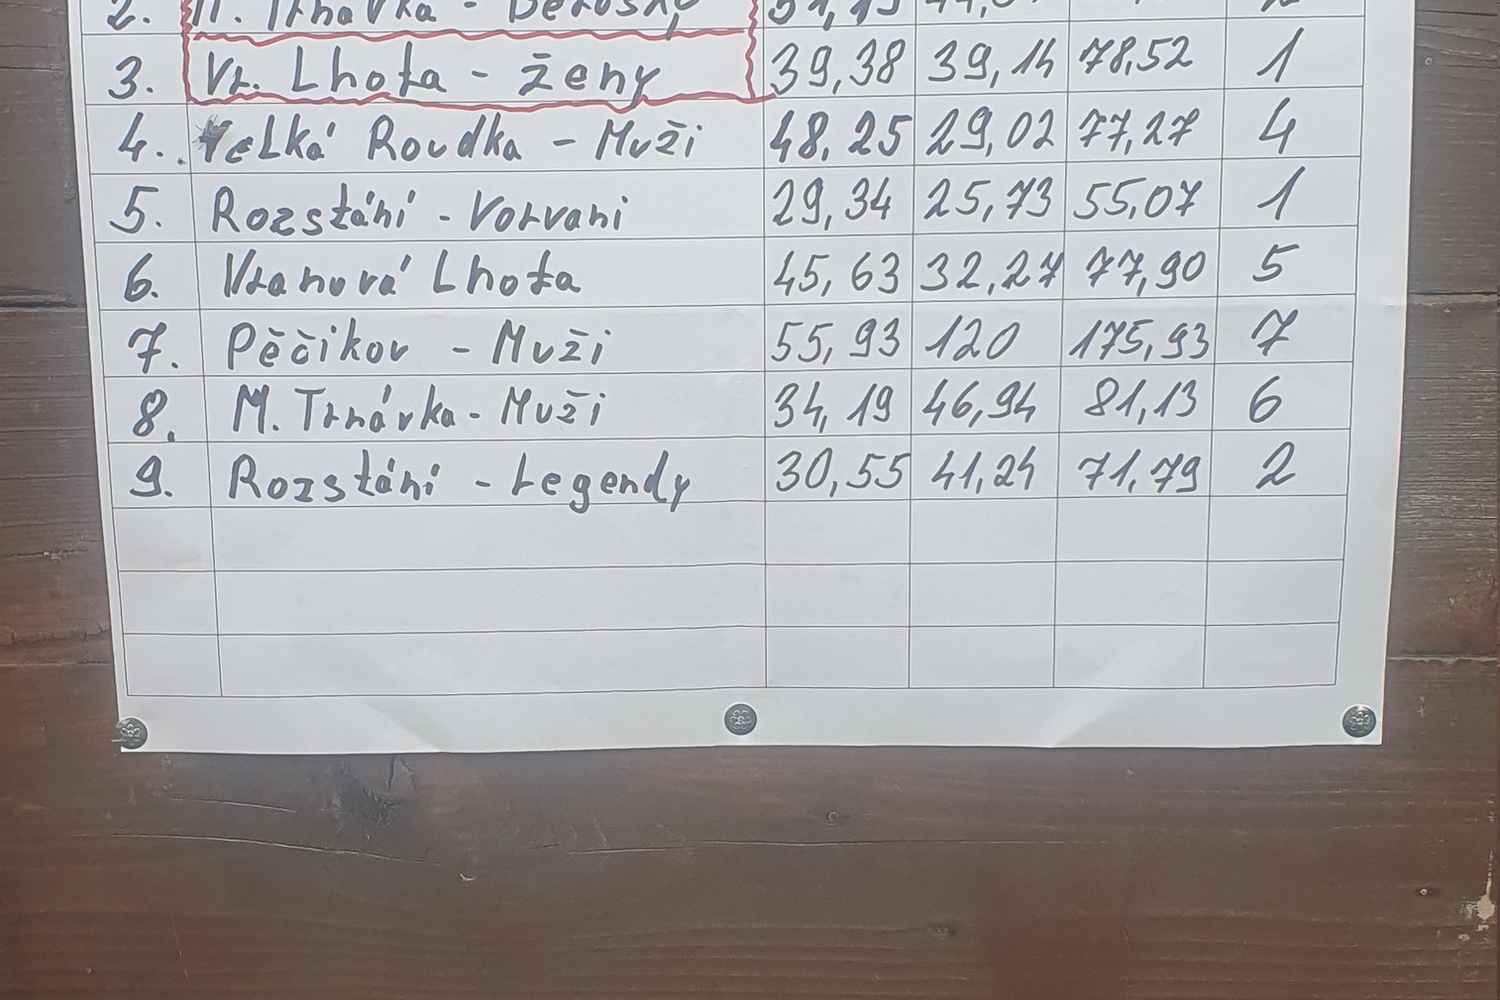 3. Vr. Lhota - ženy 39,38 39,14 78,52 1
4. Velká Roudka - Muži 48,25 29,02 77,27 4
5. Rozstání - Vorvani 29,34 25,73 55,07 1
6. Vranová Lhota 45,63 32,27 77,90 5
7. Pěčikov - Muži 55,93 120 175,93 7
8. M. Trnávka - Muži 34,19 46,94 81,13 6
9. Rozstání - Legendy 30,55 41,24 71,79 2